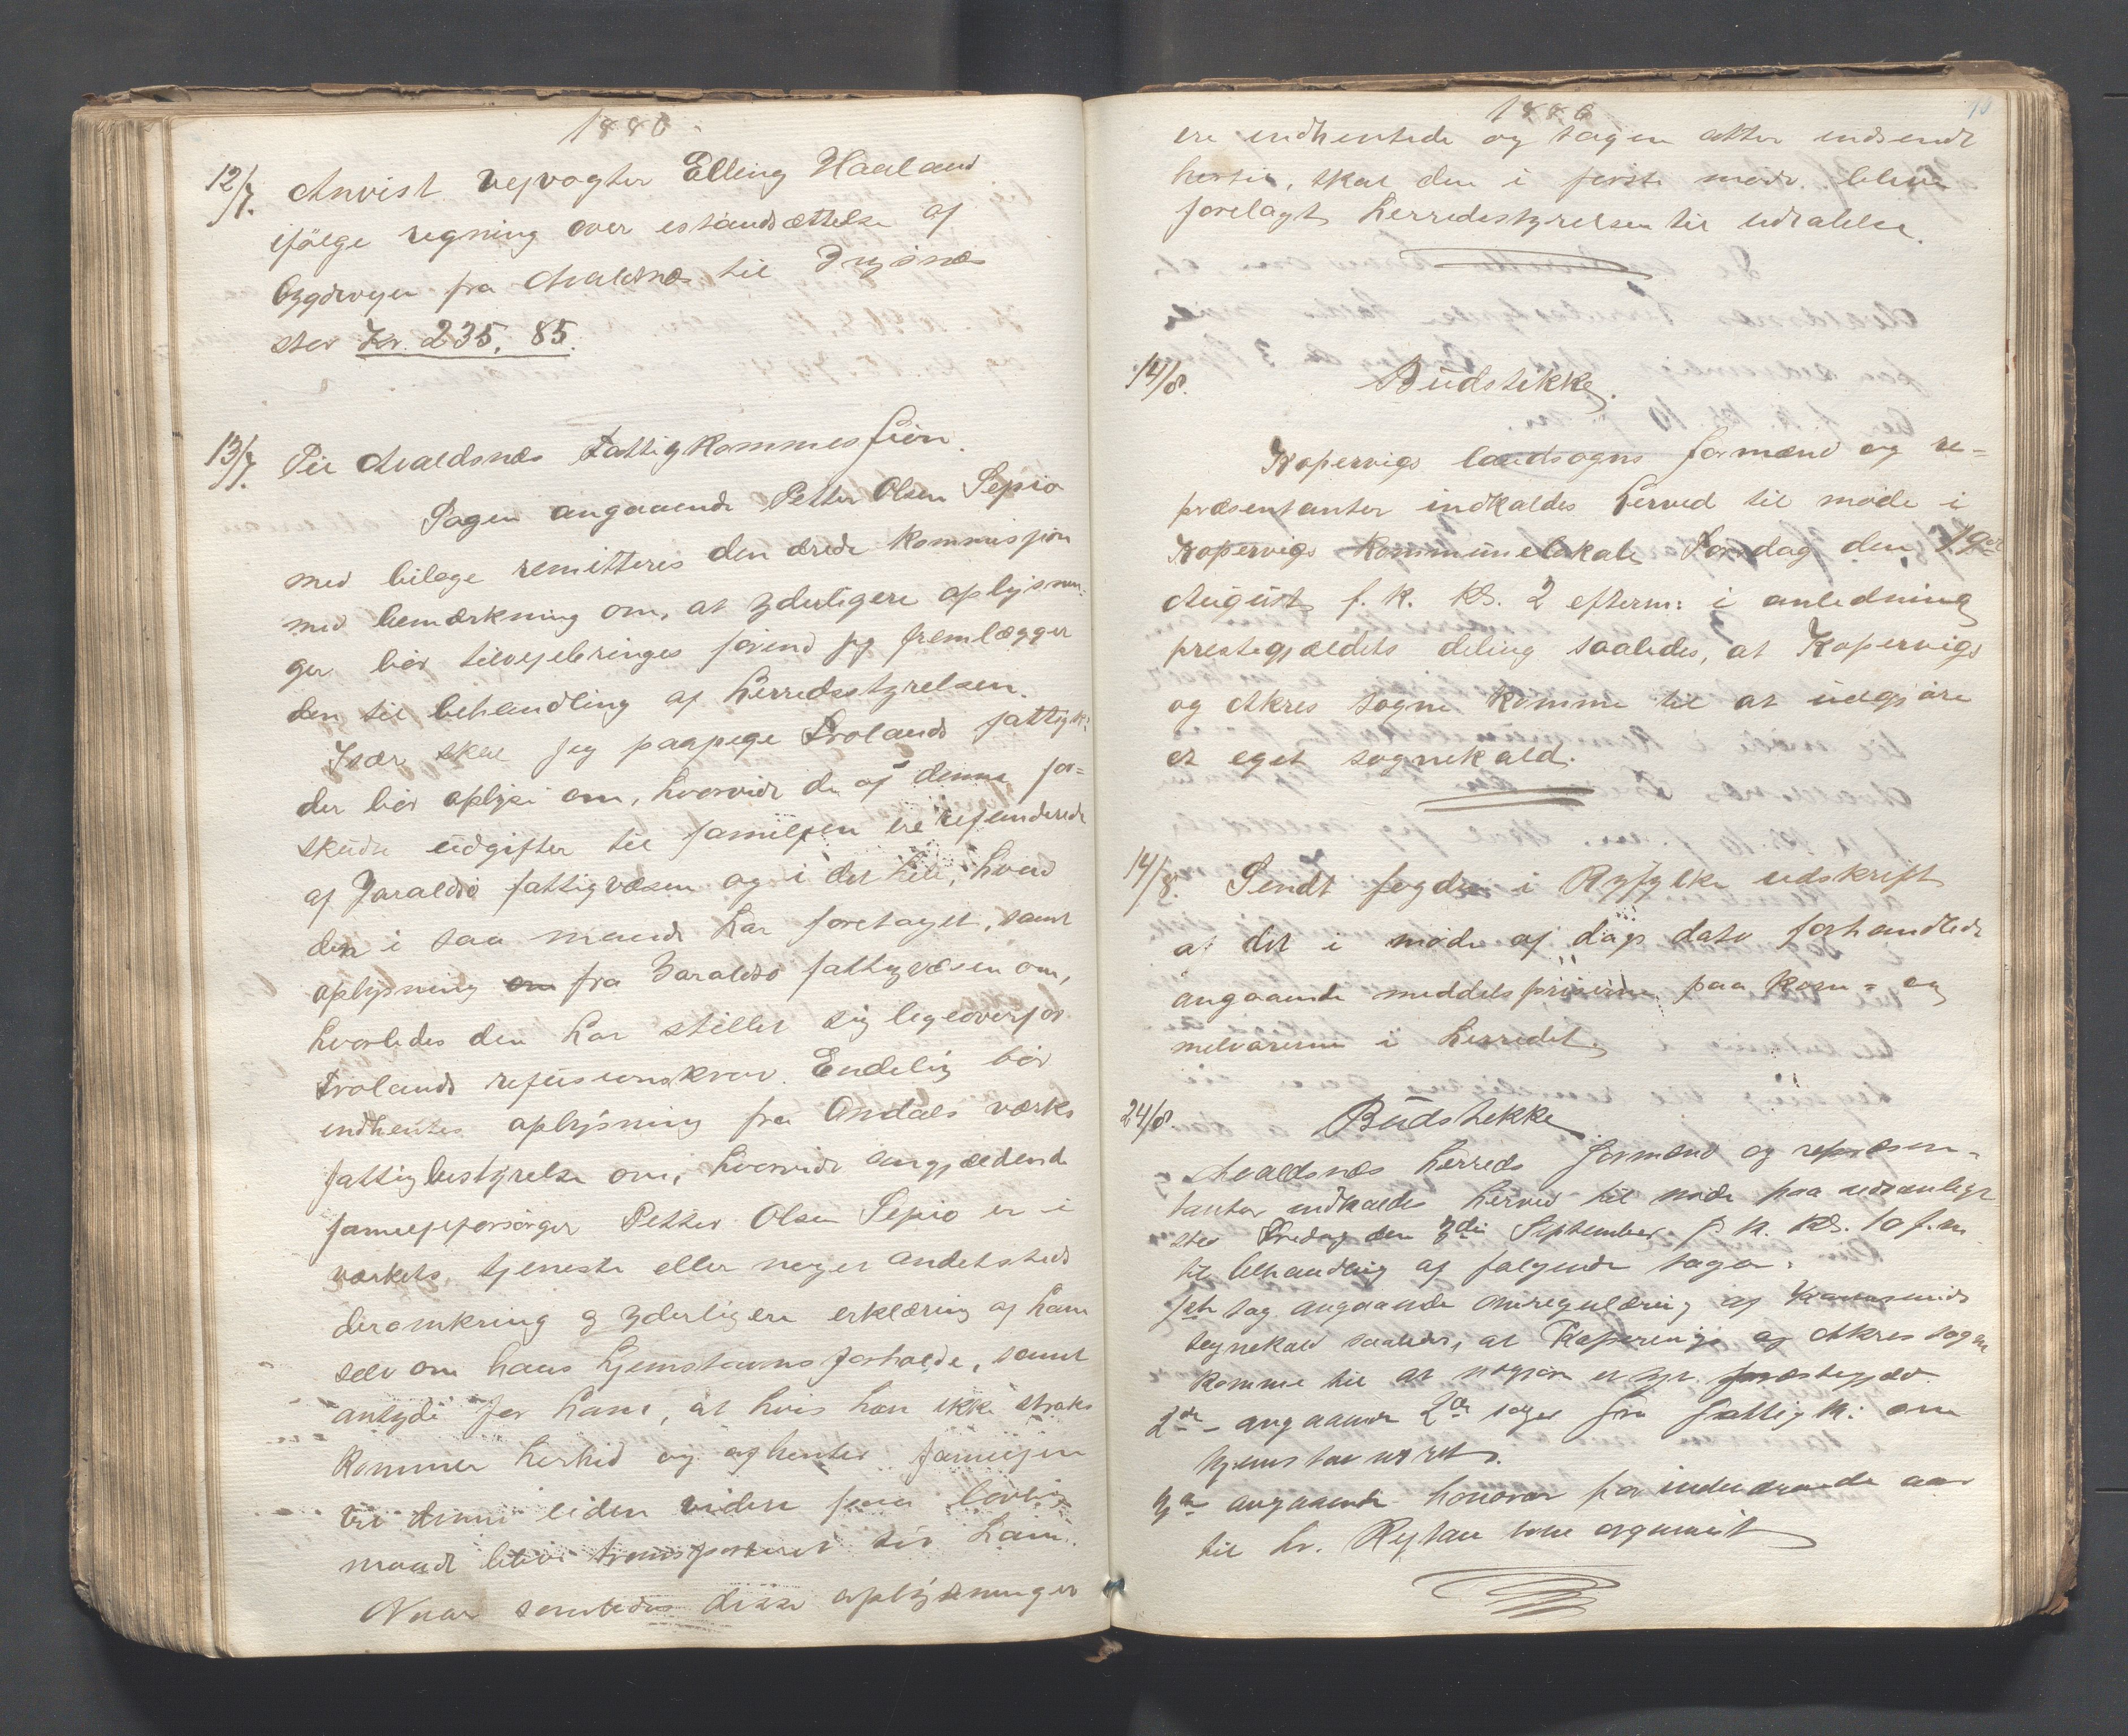 1886
12/7. Anvist vejvogter Elling Haaland
ifølge regning over istandsættelse af
bygdevejen fra Avaldsnæs til
ster Kr. 235,85.
13/7. Til Avaldsnæs Fattigkommissjon.
Sagen angaaende Petter Olsen Sepio
med bilage remitteres den ærede kommissjon
med bemærkning om, at yderligere oplysnin-
ger bør tilvejebringes førend jeg fremlægger
den til behandling af herredsstyrelsen.
Især skal jeg paapege Frolands fattigk:
der bør oplyse om, hvorvidt de af denne for-
skudte udgifter til familjen ere refunderede
af Jaraldsø fattigvæsen og i det hele, hvad
den i saa maade har foretaget, samt
oplysning om fra Jaraldsø fattigvæsen om,
hvorledes den har stillet sig ligeoverfor
Frolands refusionskrav. Endelig bør
indhentes oplysning fra Omdals værks
fattigbestyrelse om, hvorvidt angjældende
familjeforsørger Petter Olsen Sepio er i
værkets tjeneste eller noget andetsteds
deromkring og yderligere erklæring af ham
selv om hans hjemstavnsforholde, samt
antyde for ham, at hvis han ikke straks
kommer herhid og afhenter familjen
vil denne uden videre paa lovlig
maade blive transporteret til ham.
Naar saaledes disse oplysninger
1886
ere indhentede og sagen atter indsendt
hertil, skal den i første møde blive
forelagt herredsstyrelsen til udtalelse.
14/8. Budstikke.
Kopervigs landsogns formænd og re-
præsentanter indkaldes herved til møde i
Kopervigs kommunelokale Torsdag den 19de
August f. k. kl. 2 efterm: i anledning
prestegjældets deling saaledes, at Kopervigs
og Akres sogne komme til at udgjøre
et eget sognekald.
14/8. Sendt fogden i Ryfylke udskrift
af det i møde af dags dato forhandlede
angaaende middelspriserne paa korn- og
melvarerne i herredet.
24/8. Budstikke
Avaldsnæs herreds formænd og repræsen-
tanter indkaldes herved til møde paa sedvanligt
sted Fredag den 3die September f. k. kl. 10 f.m.
til behandling af følgende sager:
1ste sag angaaende omregulering af
sognekald saaledes, at Kopervigs og Akres sogne
komme til at udgjøre et eget præstegjæld.
2den - angaaende 2de sager fra fattigk: om
hjemstavnsret.
3die angaaende honorar for indeværende aar
til hr. som organist